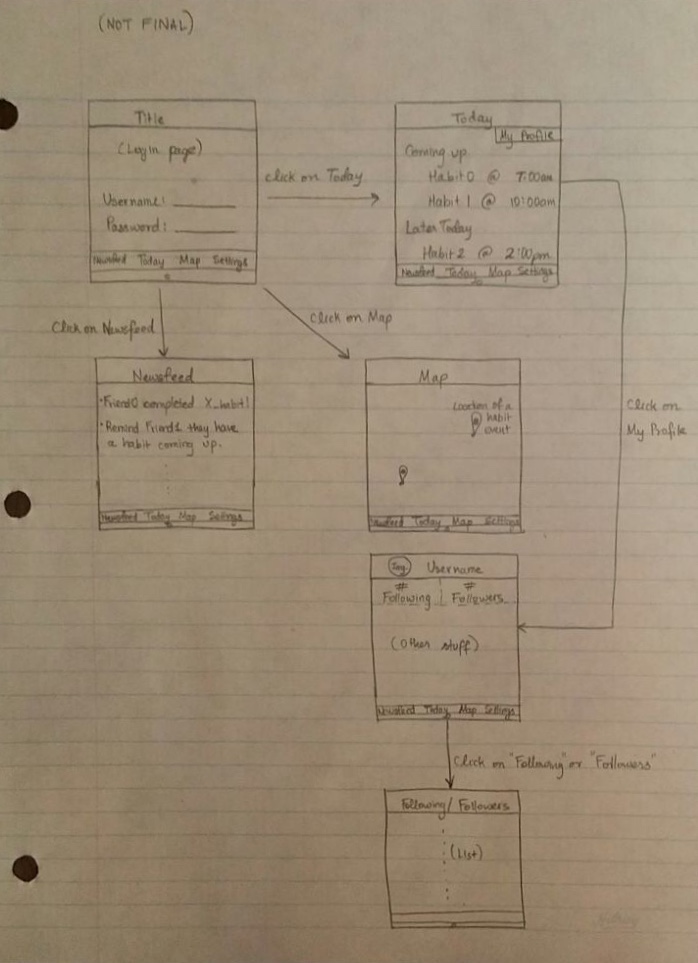 (NOT FINAL)
Title
(Login page)
Username:
Password:
Newsfeed Today Map Settings
click on Today
Today
My Profile
Coming up
Habit 0 @ 7:00am
Habit 1 @ 10:00am
Later Today
Habit 2 @ 2:00pm
Newsfeed Today Map Settings
Click on Newsfeed
Click on Map
Click on
My Profile
Newsfeed
• Friend0 completed X_habit1
• Remind Friend1 they have
a habit coming up.
Newsfeed Today Map Settings
Map
Location of a
habit
event
Newsfeed Today Map Settings
Img Username
# #
Following Followers
(Other stuff)
Newsfeed Today Map Settings
Click on "Following" or "Followers"
Following / Followers
(List)